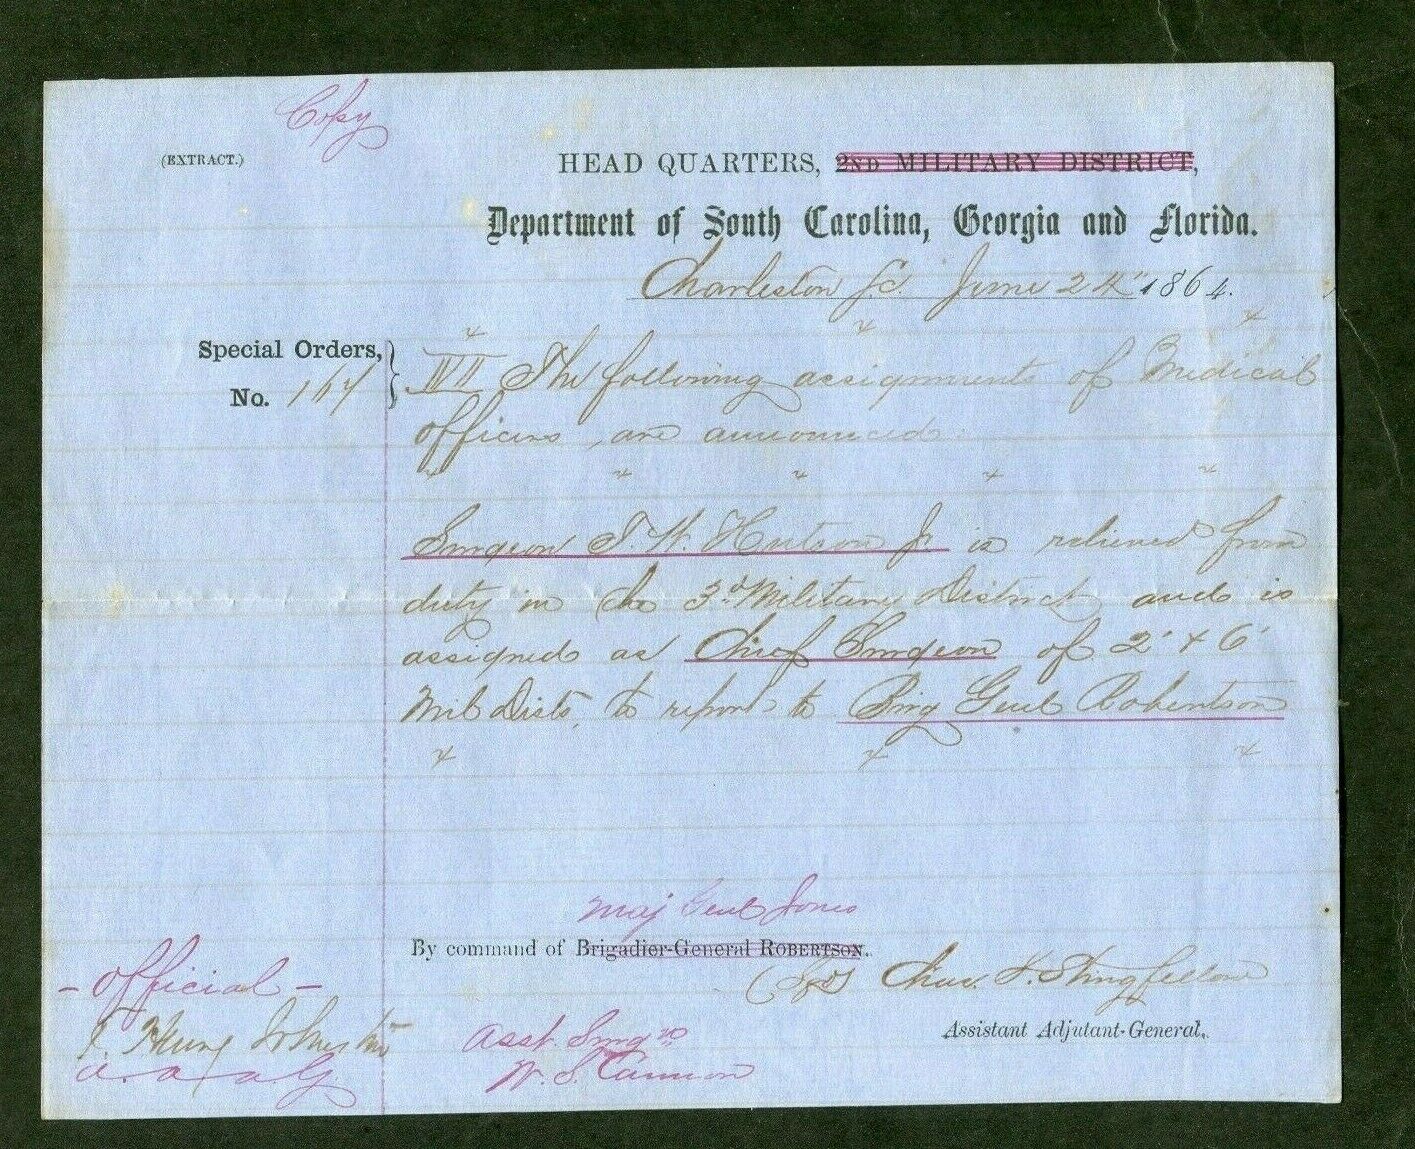 Copy
(EXTRACT.)
HEAD QUARTERS, 2ND MILITARY DISTRICT,
Department of South Carolina, Georgia and Florida.
Charleston S.C. June 24" 1864.
Special Orders,
No. 164
x x x
The following assignments of Medical
officers, are announced.
x x x x x
Surgeon T. W. Hutson Jr. is relieved from
duty in the 3d Military District and is
assigned as Chief Surgeon of 2' & 6'
Mil Dists, to report to Brig Genl Robertson
x x x
Maj Genl Jones
By command of Brigadier-General ROBERTSON.
(Sgd) Chas. S. Stringfellow
Assistant Adjutant-General.
- Official -
A. A. A. G
Asst. Surgn
W. S. Cannon